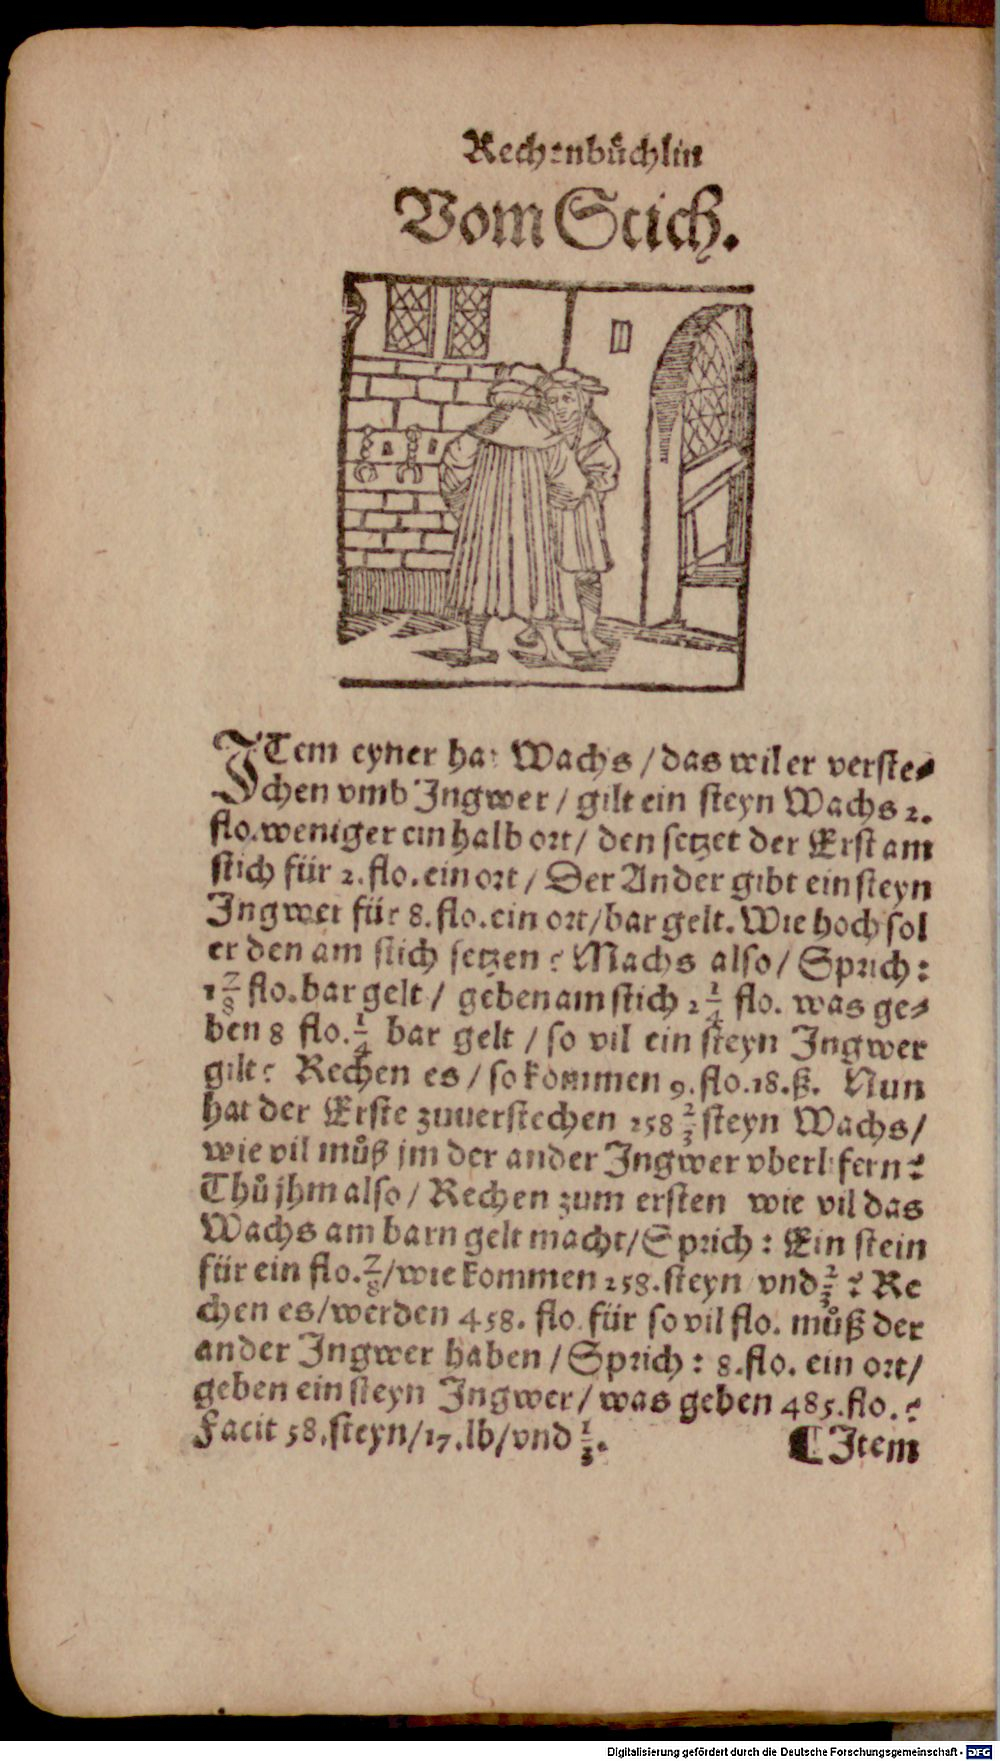 Rechenbuͤchlin
Vom Stich.
ITem eyner hat Wachs / das wil er verste⸗
chen vmb Ingwer / gilt ein steyn Wachs 2.
flo. weniger ein halb ort / den setzet der Erst am
stich für 2. flo. ein ort / Der Ander gibt ein steyn
Ingwer für 8. flo. ein ort / bar gelt. Wie hoch sol
er den am stich setzen ? Machs also / Sprich :
1 7/8 flo. bar gelt / geben am stich 2 1/4 flo. was ge⸗
ben 8 flo. 1/4 bar gelt / so vil ein steyn Ingwer
gilt ? Rechen es / so kommen 9. flo. 18. ß. Nun
hat der Erste zuuerstechen 258 2/3 steyn Wachs /
wie vil muͦß jm der ander Ingwer vberlifern ?
Thuͦ jhm also / Rechen zum ersten wie vil das
Wachs am barn gelt macht / Sprich : Ein stein
für ein flo. 7/8 / wie kommen 258. steyn vnd 2/3 ? Re
chen es / werden 458. flo. für so vil flo. muͦß der
ander Ingwer haben / Sprich : 8. flo. ein ort /
geben ein steyn Ingwer / was geben 485. flo. ?
Facit 58. steyn / 17. lb / vnd 1/3.
¶ Item
Digitalisierung gefördert durch die Deutsche Forschungsgemeinschaft - DFG